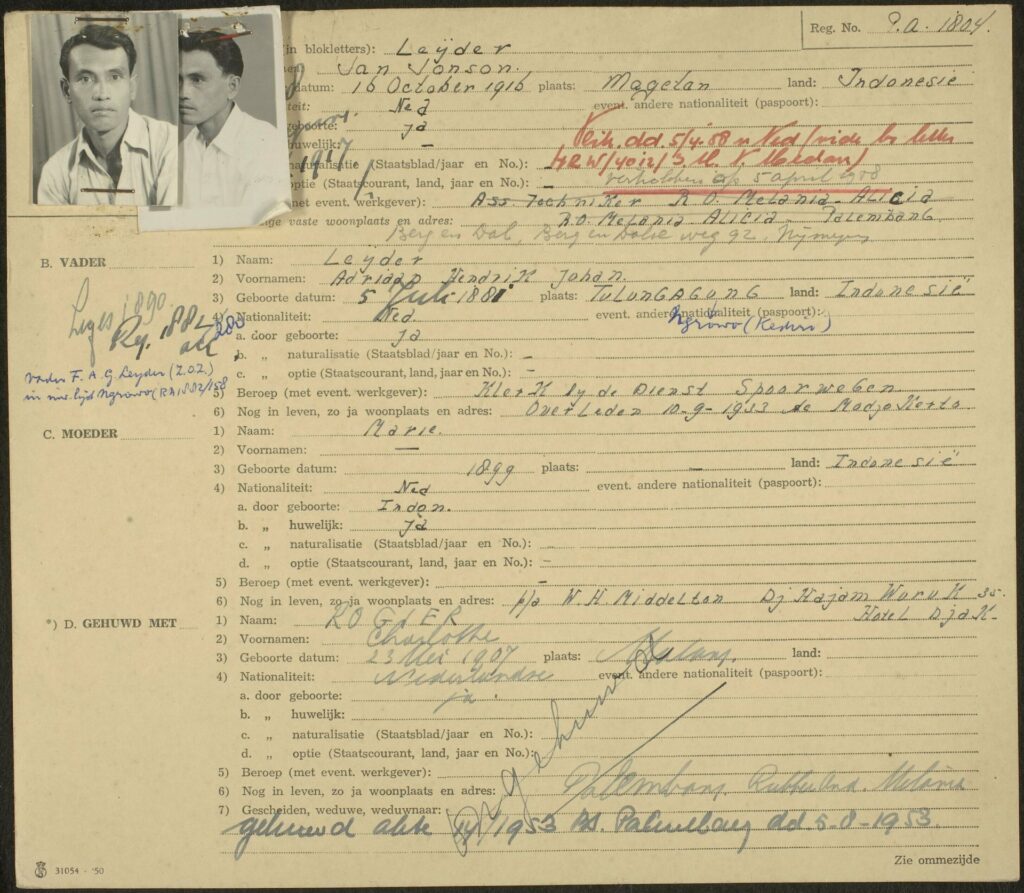 Reg. No. P.a. 1804
in blokletters): Leÿder
Jan Jonson.
datum: 16 October 1916 plaats: Magelan land: Indonesië
teit: Ned event. andere nationaliteit (paspoort):
geboorte: ja
huwelijk: -
Verh. dd 5/4-88 n Ned/vide br letter
naturalisatie (Staatsblad/jaar en No.):
optie (Staatscourant, land, jaar en No.): - verhollen op 5 april
met event. werkgever): Ass. Techniker R.O. Melania-Alicia
ige vaste woonplaats en adres: R.O. Melania Alicia - Palembang
Berg en Dal, Berg en Dalse weg 92. Nijmegen
B. VADER
1) Naam: Leyder
2) Voornamen: Adriaan Hendrik Johan.
3) Geboorte datum: 5 Juli 1881 plaats: Tulungagung land: Indonesië
4) Nationaliteit: Ned event. andere nationaliteit (paspoort):
Ngrowo (Kediri)
a. door geboorte: ja
b. „ naturalisatie (Staatsblad/jaar en No.): -
c. „ optie (Staatscourant, land, jaar en No.): -
Reg. 1882
280
vader F. A. G. Leyder (Z.O.Z.)
Ngrowo (RA 1882/158
5) Beroep (met event. werkgever): Klerk by de Dienst Spoorwegen.
6) Nog in leven, zo ja woonplaats en adres: Overleden 10-9-1933 te Madjokerto
C. MOEDER
1) Naam: Marie.
2) Voornamen: —
3) Geboorte datum: 1899 plaats: — land: Indonesië
4) Nationaliteit: Ned event. andere nationaliteit (paspoort):
a. door geboorte: Indon.
b. „ huwelijk: ja
c. „ naturalisatie (Staatsblad/jaar en No.):
d. „ optie (Staatscourant, land, jaar en No.): -
5) Beroep (met event. werkgever): -
6) Nog in leven, zo ja woonplaats en adres: p/a W.H. Middelton Dj Hajam Wuruk 35.
Hotel Djak-
*) D. GEHUWD MET
1) Naam: ROGIER
2) Voornamen: Charlotte
3) Geboorte datum: 23 Mei 1907 plaats: Malang. land:
4) Nationaliteit: Nederlandse event. andere nationaliteit (paspoort):
a. door geboorte: ja.
b. „ huwelijk:
c. „ naturalisatie (Staatsblad/jaar en No.):
d. „ optie (Staatscourant, land, jaar en No.):
5) Beroep (met event. werkgever):
6) Nog in leven, zo ja woonplaats en adres: Palembang Rubber Ond. Melania
7) Gescheiden, weduwe, weduwnaar:
gehuwd akte 14/1953 BS. Palembang dd 5-8-1953.
31054 - '50
Zie ommezijde